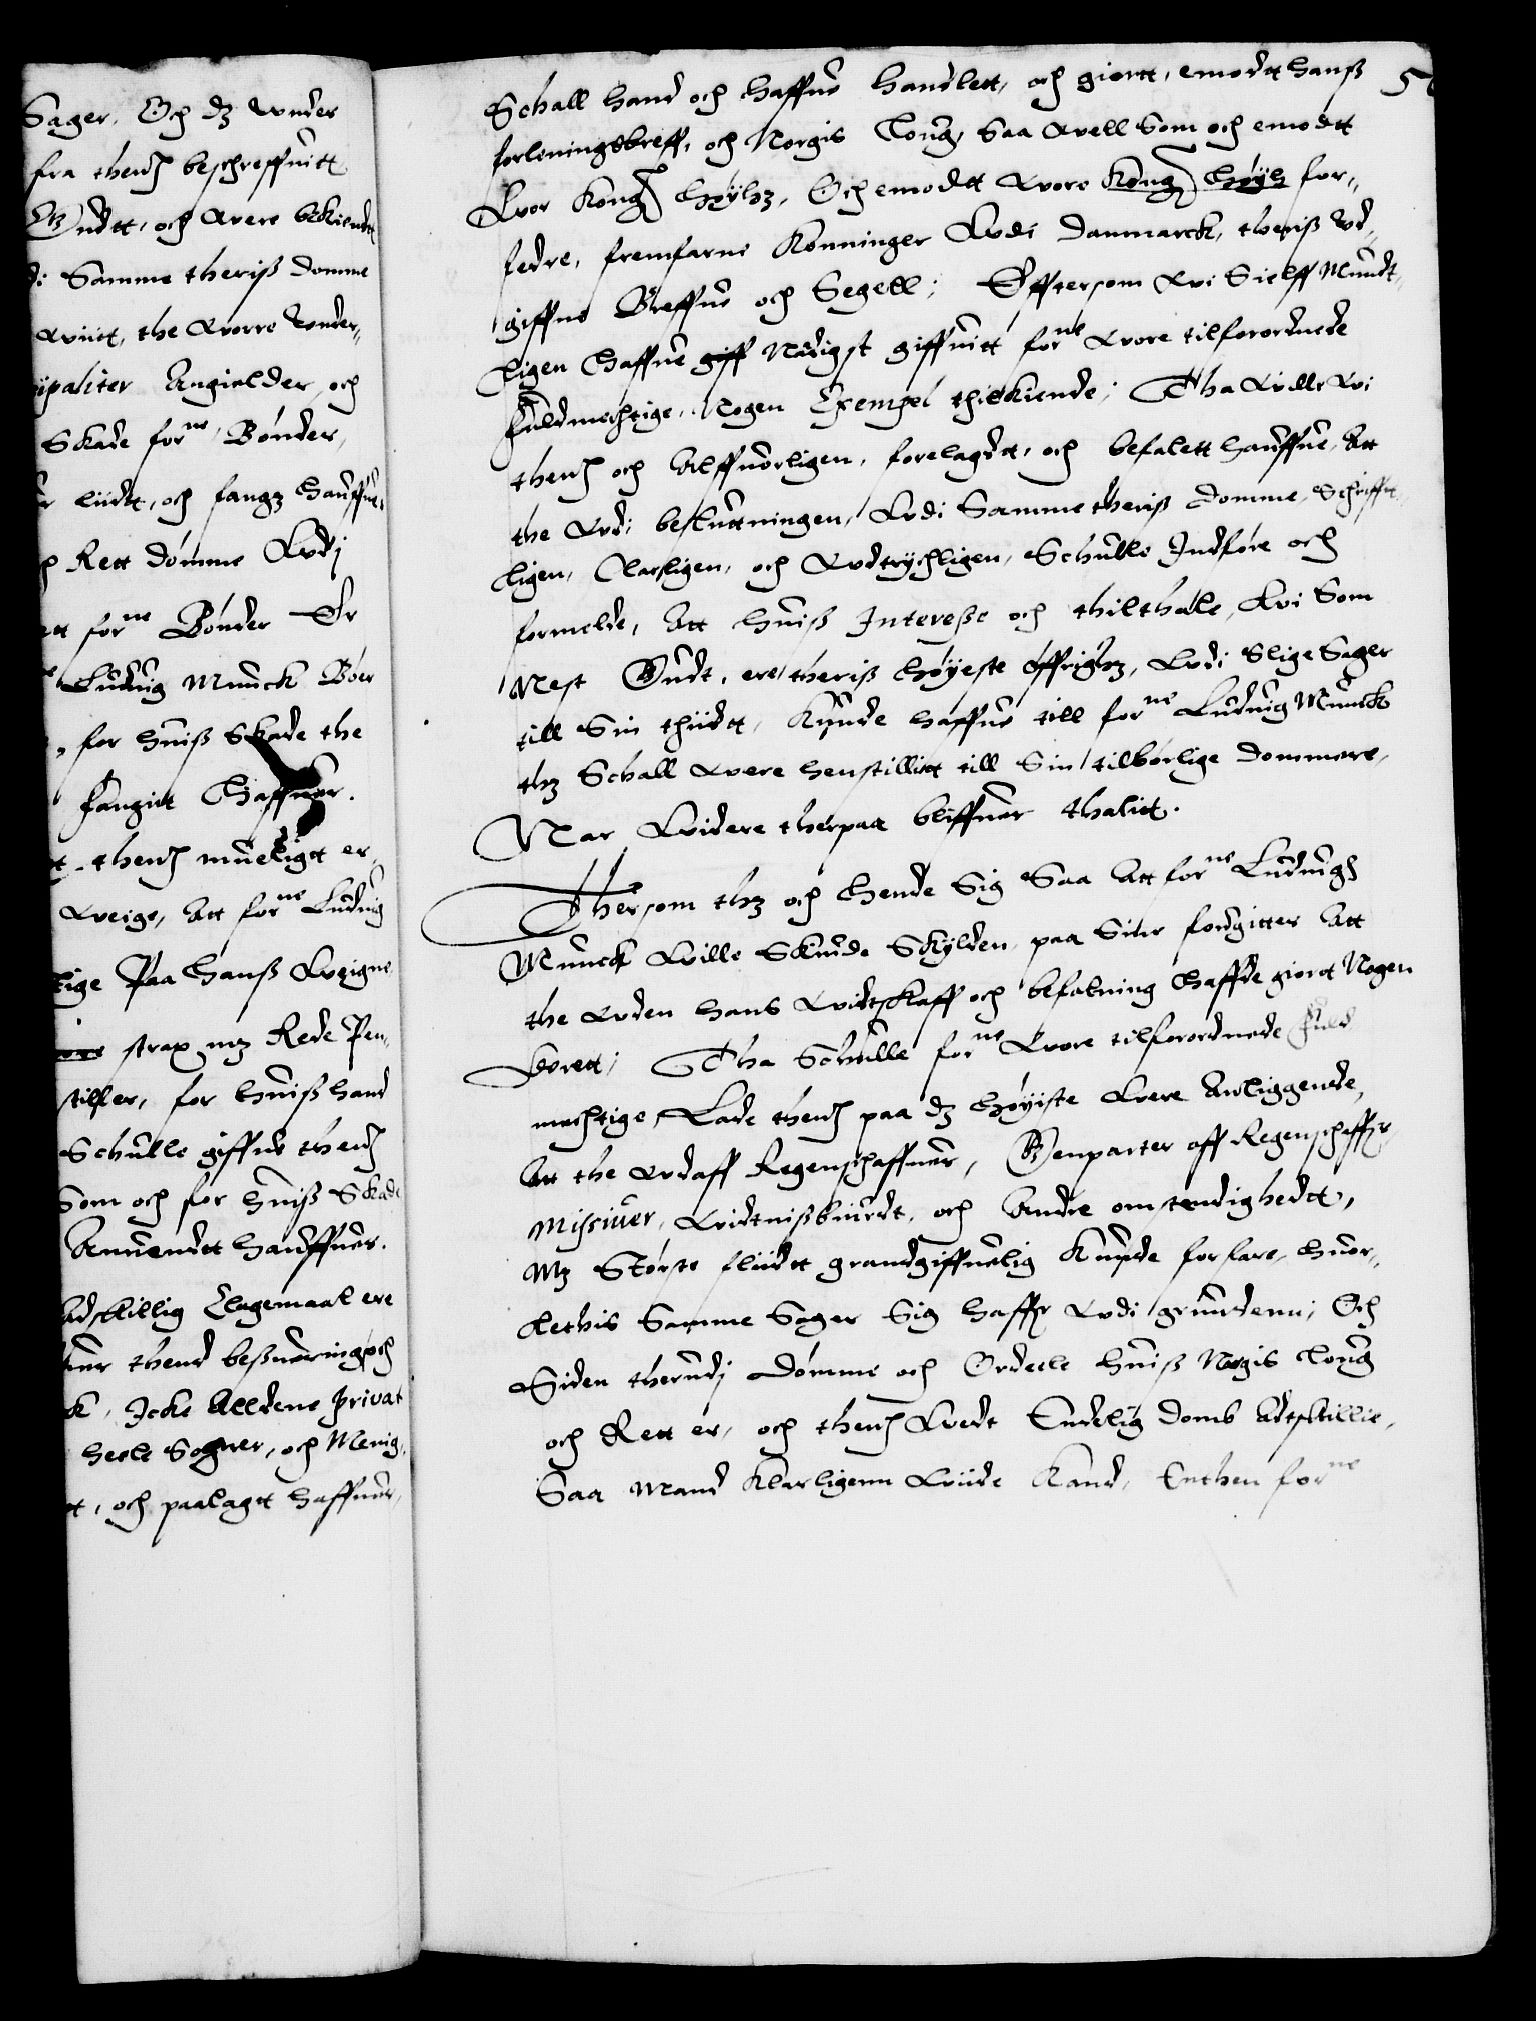 Sager, Och dz vnder
fra thend beschreffuitt
Gudtt, och were bekiendt
di Samme theriß domme
wiitt, the worre vnder,,
ipaliter Angielder, och
Skade forne Bønder,
liidtt, och fangz hauffue,
Rett dømme vdj
ett forne Bønder Er
Ludvig Munck Bør
, for huiß Skade the
fangitt Haffuer.
thend mueligtt er,
weige, Att forne Ludvig
tige Paa hanß Eigne
strax mz Rede Pen,,
stiller, for huiß hand
Schulle giffue thend
Som och for huiß Skade
Anuendtt hauffuer.
adskillig Clagemaal ere
thend beßuering och
k, Icke Alldene Privat
heele Sogner, och Menig,,
tt, och paalagtt haffuer,
Schall hand och haffue handlett, och giortt, emodtt hanß
forleningsbreff, och Norgis Loug, Saa well Som och emodtt
Vor Kong: Høyhz, Och emodtt wore Kong: Høyh for,,
fedre, fremfarne Konninger vdi Danmarck, theriß vd,,
giffne Breffue och Segell; Efftersom wi Sielff Mundt,,
ligen Haffue giff Nådigst giffuitt forne wore tilforordnede
fuldmechtige, Nogen Exempel thilkiende; Tha wille wi
thend och Alffuorligen, forelagdt, och befalett hauffue, Att
the vdi beslutningen, vdi Samme theriß domme, Schrifft,,
ligen, Clarligen, och vdtrychligen, Schulle Indføre och
formelde, Att huiß Interesse och thilthale, wi Som
Nest Gudt, ere theriß høyeste øffrighz, vdi Slige Sager
till Sin thiidtt, Kunde haffue till forne Ludvig Munck
thz Schall were henstillitt till Sin tilbørlige dommere,
Nar widere therpaa bliffuer thalitt.
Thersom thz och Hende Sig Saa Att forne Ludvig
Munck wille Skiude Skylden, paa Sine fougitter Att
the vden hans widtskaff och befalning Haffde giortt Nogen
vrett; Tha Schulle forne wore tilforordnede fuld
mechtige, Lade thend paa dz høyiste were Anliggende,
Att the vdaff Regenschaffuer, Genparter aff Regenschaffr
Missiuer, widtnißbiurdt, och Andre omstendighedtt,
Mz Største fliidtt grandgiffuelig Kunde forfare, huor,,
lethis Samme Sager Sig haffr vdi grundenn; Och
Siden therudj Dømme och Ordeele huiß Norgis Loug
och Rett er, och thend wedt Endelig domb Adtskillie,
Saa Mand Klarligenn wiide Kand, Enthen forne